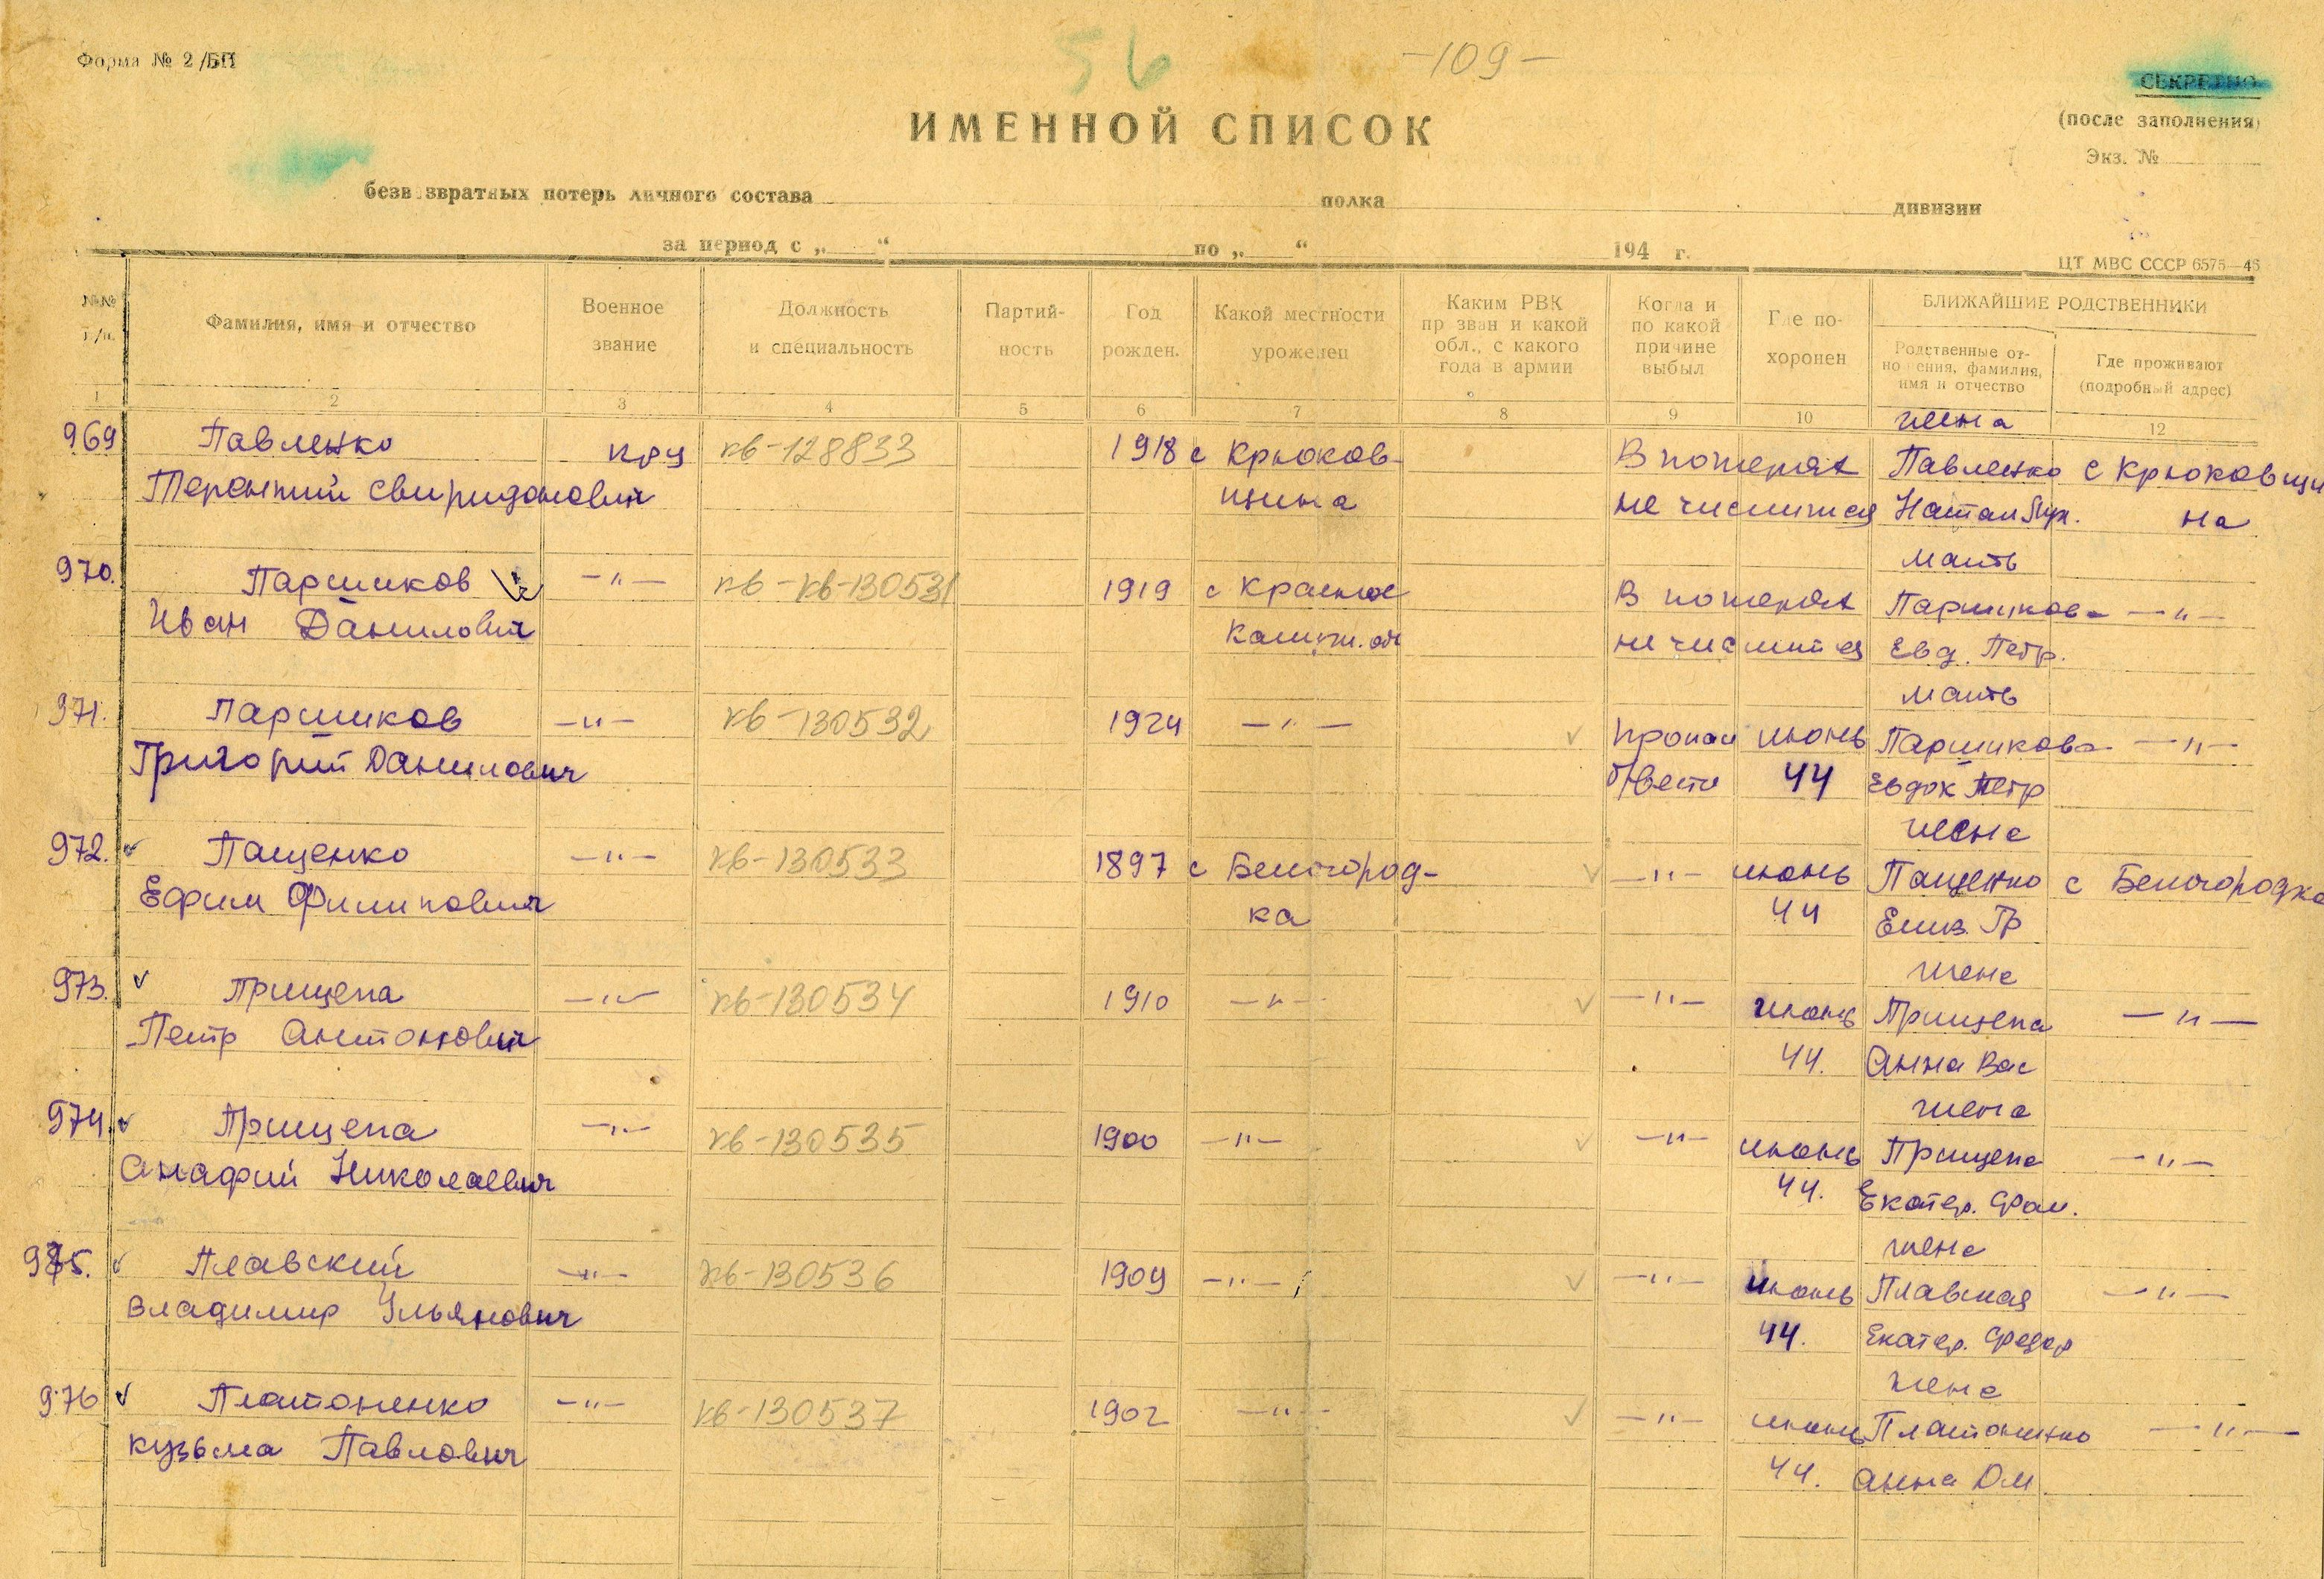 Форма № 2/БП
56
-109-
СЕКРЕТНО
(после заполнения)
Экз. №
ИМЕННОЙ СПИСОК
безвозвратных потерь личного состава полка дивизии
за период с „ “ по „ “ 194 г.
ЦТ МВС СССР 6575—46
№№ п/п. Фамилия, имя и отчество Военное звание Должность и специальность Партийность Год рожден. Какой местности уроженец Каким РВК призван и какой обл., с какого года в армии Когда и по какой причине выбыл Где похоронен БЛИЖАЙШИЕ РОДСТВЕННИКИ
Родственные отношения, фамилия, имя и отчество Где проживают (подробный адрес)
1 2 3 4 5 6 7 8 9 10 12
жена
969 Павленко кр-ц кв-128833 1918 с Крюков- В потерях Павленко с Крюковщи
Терентий Свиридонович щина не числится Натал. на
мать
970. Паршиков -"- кв-кв-130531 1919 с Красное В потерях Паршикова -"-
Иван Данилович не числится Евд. Петр.
мать
971. Паршиков -"- кв-130532 1924 -"- пропал июнь Паршикова -"-
Григорий Данилович б/вести 44 Евдок Петр
жена
972. Пащенко -"- кв-130533 1897 с Белгород- -"- июнь Пащенко с Белгородка
Ефим Филипович ка 44 Елиз. Гр
жена
973. Прищепа -"- кв-130534 1910 -"- -"- июнь Прищепа -"-
Петр Антонович 44. Анна Вас
жена
974. Прищепа -"- кв-130535 1900 -"- -"- июнь Прищепа -"-
Анафий Николаевич 44. Екатер.
жена
975. Плавский -"- кв-130536 1909 -"- -"- июнь Плавская -"-
Владимир Ульянович 44. Екатер. Федор
жена
976 Платоненко -"- кв-130537 1902 -"- -"- июнь Платоненко -"-
Кузьма Павлович 44. Анна Дм.